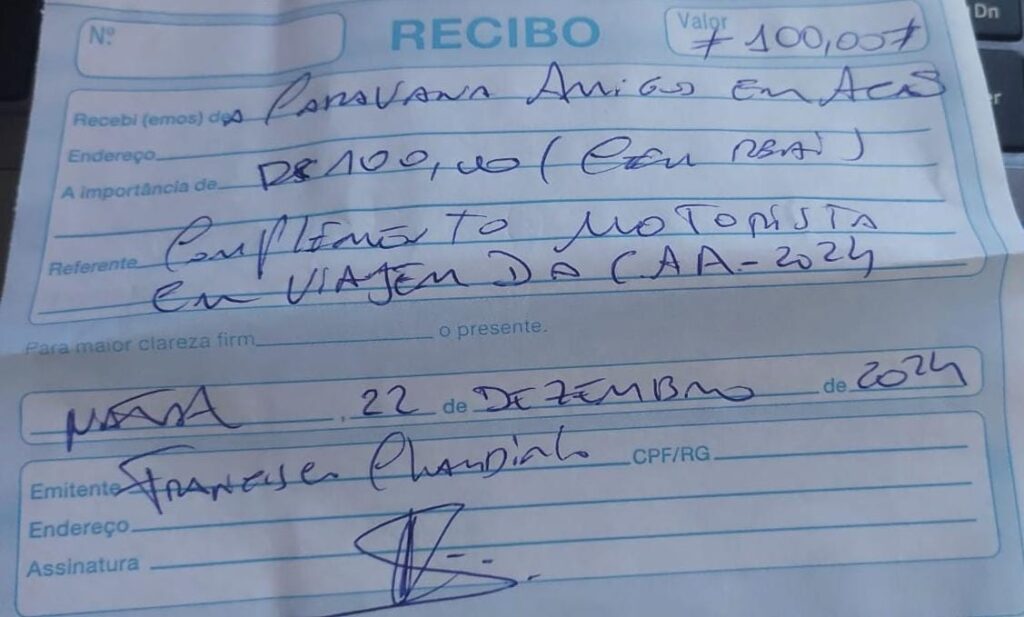 Nº RECIBO Valor # 100,00 #
Recebi (emos) da Caravana Amigos em Ação
Endereço
A importância de R$ 100,00 (Cem reais)
Referente Complemento MOTORISTA
em VIAJEM DA CAA-2024
Para maior clareza firm o presente.
, 22 de DEZEMBRO de 2024
Emitente CPF/RG
Endereço
Assinatura
Dn